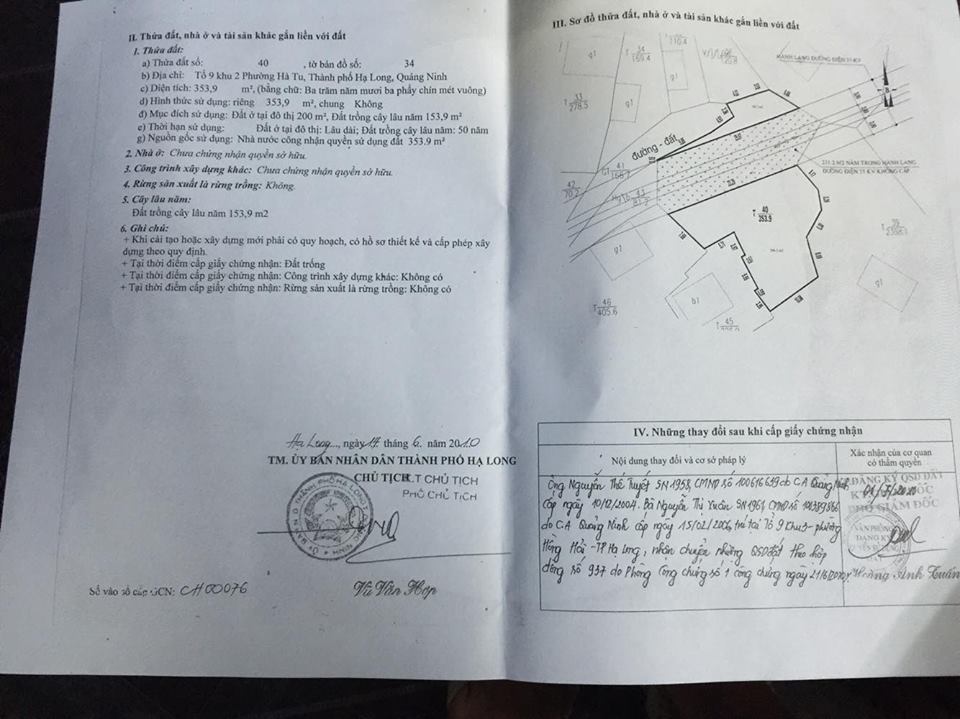 II. Thửa đất, nhà ở và tài sản khác gắn liền với đất
1. Thửa đất:
a) Thửa đất số: 40 , tờ bản đồ số: 34
b) Địa chỉ: Tổ 9 khu 2 Phường Hà Tu, Thành phố Hạ Long, Quảng Ninh
c) Diện tích: 353,9 m², (bằng chữ: Ba trăm năm mươi ba phẩy chín mét vuông)
d) Hình thức sử dụng: riêng 353,9 m², chung Không
đ) Mục đích sử dụng: Đất ở tại đô thị 200 m², Đất trồng cây lâu năm 153,9 m²
e) Thời hạn sử dụng: Đất ở tại đô thị: Lâu dài; Đất trồng cây lâu năm: 50 năm
g) Nguồn gốc sử dụng: Nhà nước công nhận quyền sử dụng đất 353.9 m²
2. Nhà ở: Chưa chứng nhận quyền sở hữu.
3. Công trình xây dựng khác: Chưa chứng nhận quyền sở hữu.
4. Rừng sản xuất là rừng trồng: Không.
5. Cây lâu năm:
Đất trồng cây lâu năm 153,9 m2
6. Ghi chú:
+ Khi cải tạo hoặc xây dựng mới phải có quy hoạch, có hồ sơ thiết kế và cấp phép xây
dựng theo quy định.
+ Tại thời điểm cấp giấy chứng nhận: Đất trống
+ Tại thời điểm cấp giấy chứng nhận: Công trình xây dựng khác: Không có
+ Tại thời điểm cấp giấy chứng nhận: Rừng sản xuất là rừng trồng: Không có
Hạ Long, ngày 17 tháng 6 năm 2010
TM. ỦY BAN NHÂN DÂN THÀNH PHỐ HẠ LONG
CHỦ TỊCH K.T CHỦ TỊCH
PHÓ CHỦ TỊCH
Số vào sổ cấp GCN: CH00076
Vũ Văn Hợp
III. Sơ đồ thửa đất, nhà ở và tài sản khác gắn liền với đất
HÀNH LANG ĐƯỜNG ĐIỆN 35 KV
B
g1
T 34 159.4
T 31 278.5
g1
đường - đất
T 41
42 70.2
231.2 M2 NẰM TRONG HÀNH LANG
ĐƯỜNG ĐIỆN 35 KV KHÔNG CẤP
T 40 353.9
g1
b1
g1
T 46 405.6
T 45
IV. Những thay đổi sau khi cấp giấy chứng nhận
Nội dung thay đổi và cơ sở pháp lý
Xác nhận của cơ quan
có thẩm quyền
Ông Nguyễn Thế Tuyết SN 1958, CMND số 100616619 do C.A Quảng Ninh
cấp ngày 10/12/2004. Bà Nguyễn Thị Xuân SN 1961 CMND số
do C.A Quảng Ninh cấp ngày 15/02/2006, trú tại Tổ 9 Khu 3 - phường
Hồng Hải - TP Hạ Long, nhận chuyển nhượng QSDđất theo hợp
đồng số 937 do Phòng Công chứng số 1 công chứng ngày 21/6/2010
ĐĂNG KÝ QSD ĐẤT
PHÓ GIÁM ĐỐC
VĂN PHÒNG
ĐĂNG KÝ
Hoàng Anh Tuấn